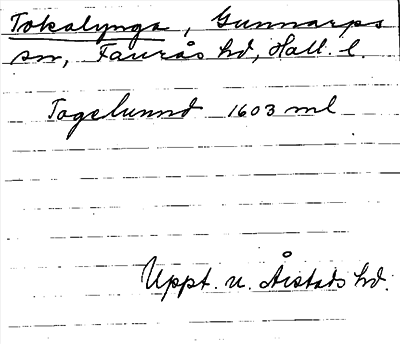 Tokalynga, Gunnarps
sn, Faurås hd, Hall. l.
Togelunnd 1603 ml
Uppt. u. Årstads hd.